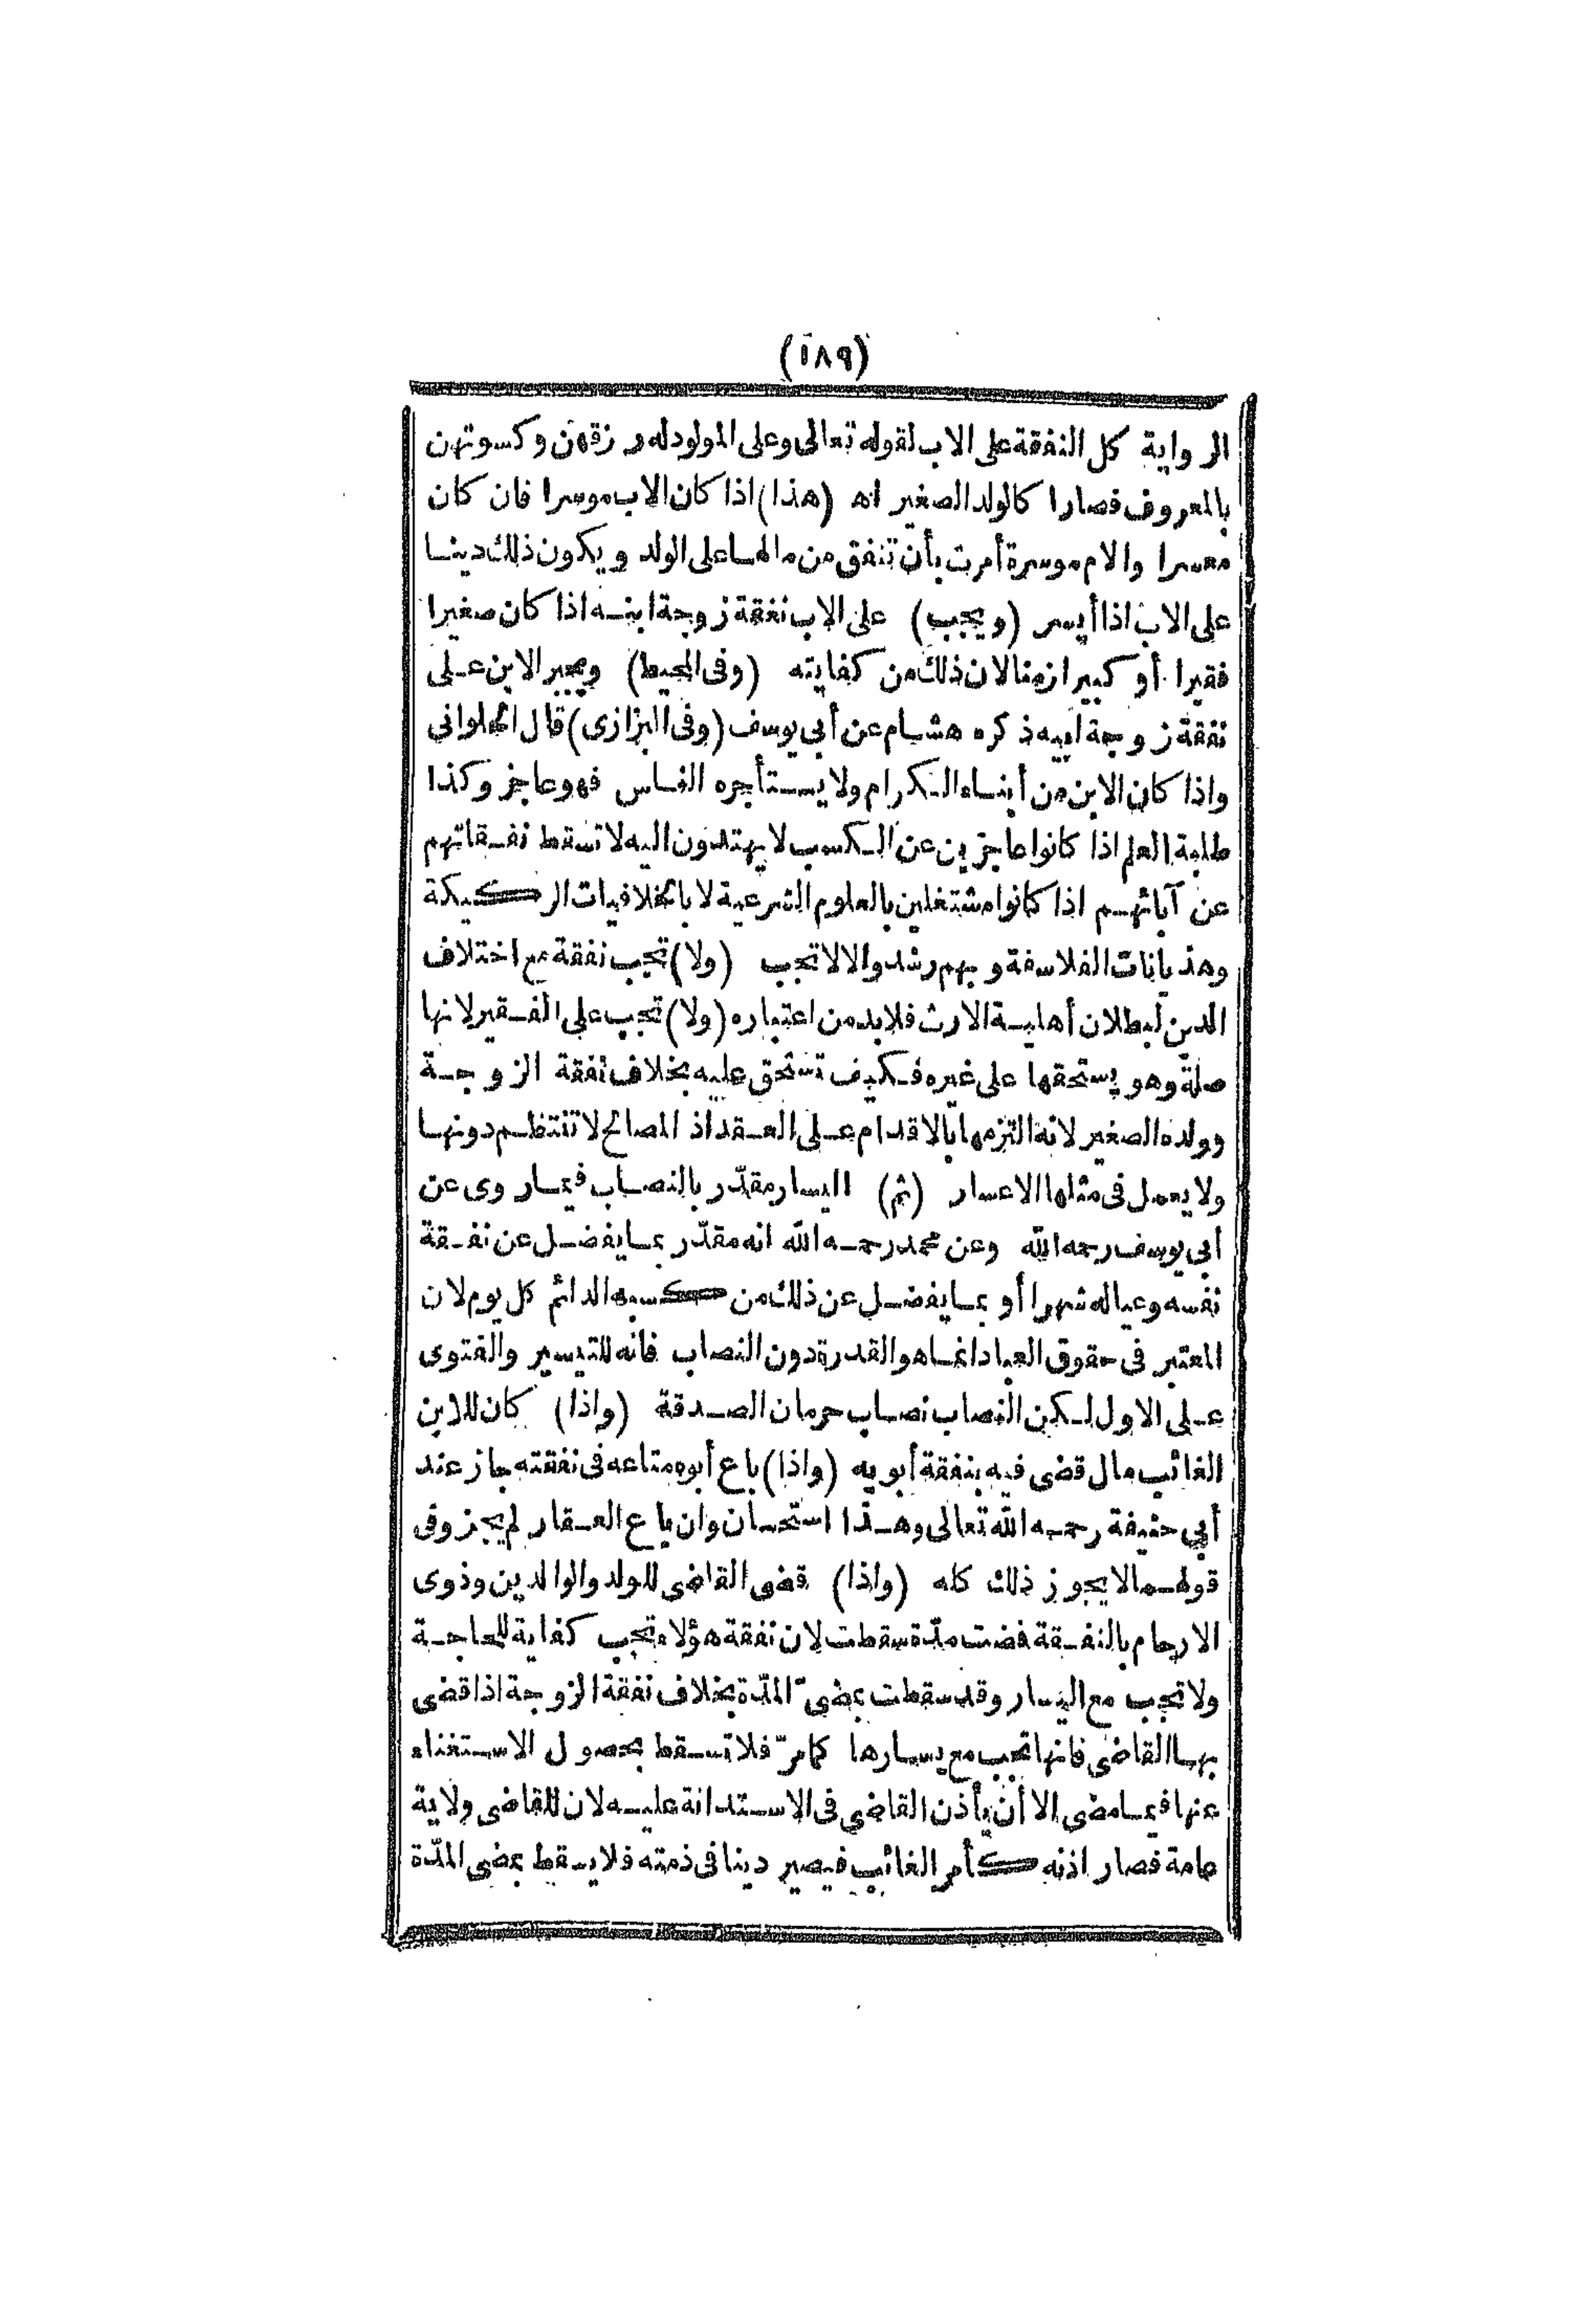 (١٨٩)
الرواية كل النفقة على الاب لقوله تعالى وعلى المولود له رزقهن وكسوتهن
بالمعروف فصارا كالولد الصغير اه (هذا) اذا كان الاب موسرا فان كان
معسرا والام موسرة أمرت بأن تنفق من مالها على الولد ويكون ذلك دينا
على الاب اذا أيسر (ويجب) على الاب نفقة زوجة ابنه اذا كان صغيرا
فقيرا أو كبيرا زمنا لان ذلك من كفايته (وفى المحيط) ويجبر الابن على
نفقة زوجة أبيه ذكره هشام عن أبى يوسف (وفى البزازى) قال الحلوانى
واذا كان الابن من أبناء الكرام ولا يستأجره الناس فهو عاجز وكذا
طلبة العلم اذا كانوا عاجزين عن الكسب لا يهتدون اليه لا تسقط نفقاتهم
عن آبائهم اذا كانوا مشتغلين بالعلوم الشرعية لا بالخلافيات الركيكة
وهذيانات الفلاسفة وبهم رشد والا لا تجب (ولا) تجب نفقة مع اختلاف
الدين لبطلان أهلية الارث فلا بد من اعتباره (ولا) تجب على الفقير لانها
صلة وهو يستحقها على غيره فكيف تستحق عليه بخلاف نفقة الزوجة
وولده الصغير لانه التزمها بالاقدام على العقد اذ المصالح لا تنتظم دونها
ولا يعمل فى مثلها الاعسار (ثم) اليسار مقدّر بالنصاب فيما روى عن
أبى يوسف رحمه الله وعن محمد رحمه الله انه مقدّر بما يفضل عن نفقة
نفسه وعياله شهرا أو بما يفضل عن ذلك من كسبه الدائم كل يوم لان
المعتبر فى حقوق العباد انما هو القدرة دون النصاب فانه للتيسير والفتوى
على الاول لكن النصاب نصاب حرمان الصدقة (واذا) كان للابن
الغائب مال قضى فيه بنفقة أبويه (واذا) باع أبوه متاعه فى نفقته جاز عند
أبى حنيفة رحمه الله تعالى وهذا استحسان وان باع العقار لم يجز وفى
قولهما لا يجوز ذلك كله (واذا) قضى القاضى للولد والوالدين وذوى
الارحام بالنفقة فضت مدّة سقطت لان نفقة هؤلاء تجب كفاية للحاجة
ولا تجب مع اليسار وقد سقطت بمضىّ المدّة بخلاف نفقة الزوجة اذا قضى
بها القاضى فانها تجب مع يسارها كما مرّ فلا تسقط بحصول الاستغناء
عنها فيما مضى الا أن يأذن القاضى فى الاستدانة عليه لان للقاضى ولاية
عامة فصار اذنه كأمر الغائب فيصير دينا فى ذمته فلا يسقط بمضى المدّة